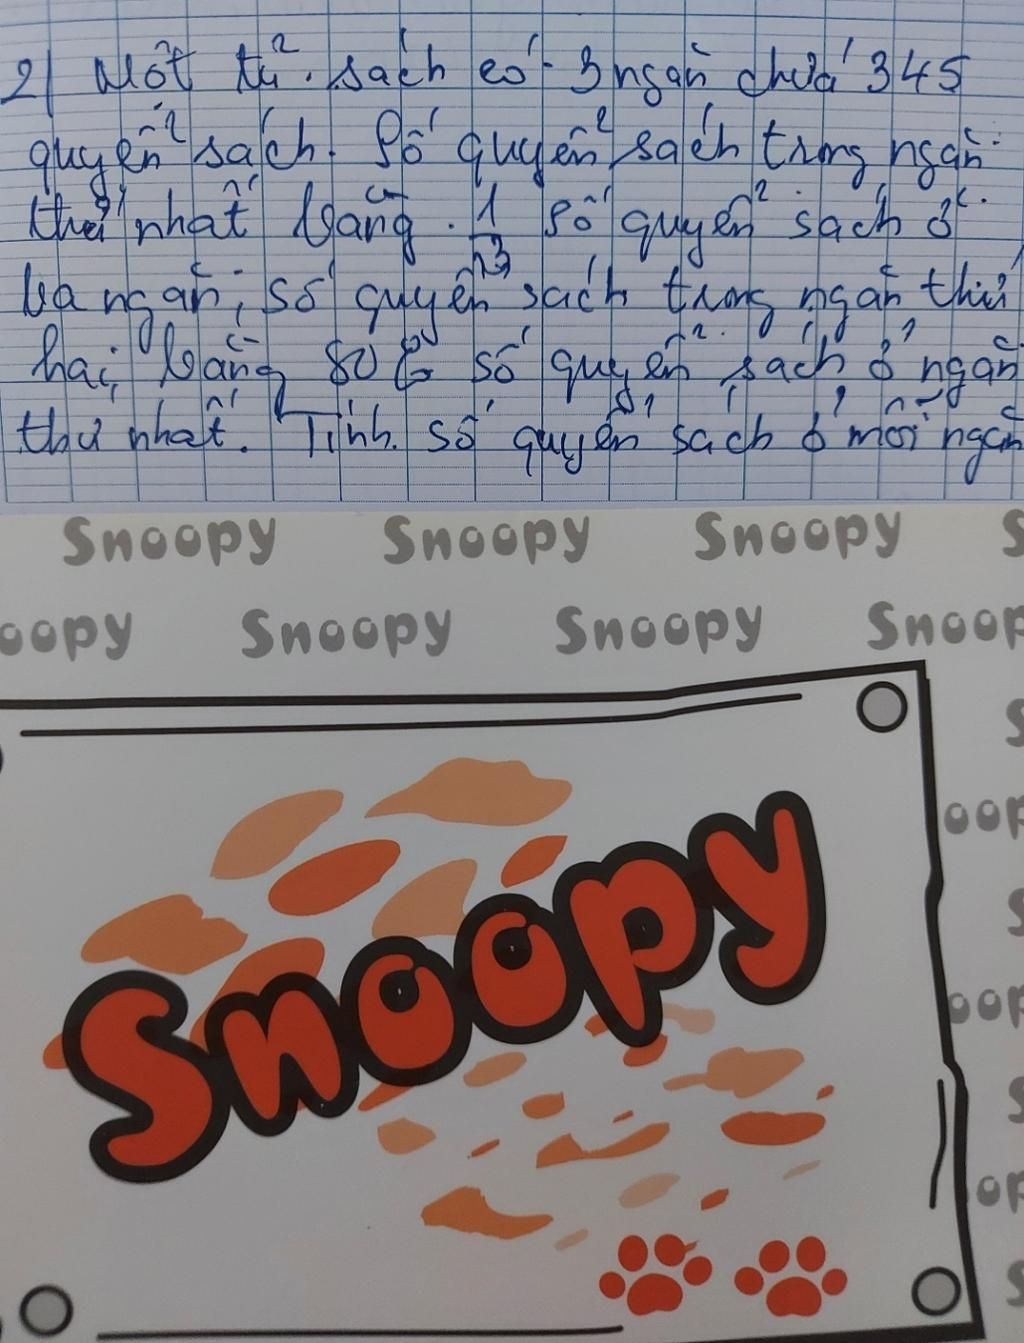 2) Một tủ sách có 3 ngăn chứa 345
quyển sách. Số quyển sách trong ngăn
thứ nhất bằng 1/3 số quyển sách ở
ba ngăn, số quyển sách trong ngăn thứ
hai bằng 80% số quyển sách ở ngăn
thứ nhất. Tính số quyển sách ở mỗi ngăn
Snoopy Snoopy Snoopy S
oopy Snoopy Snoopy Snoop
S
oop
S
Snoopy
oop
S
op
S